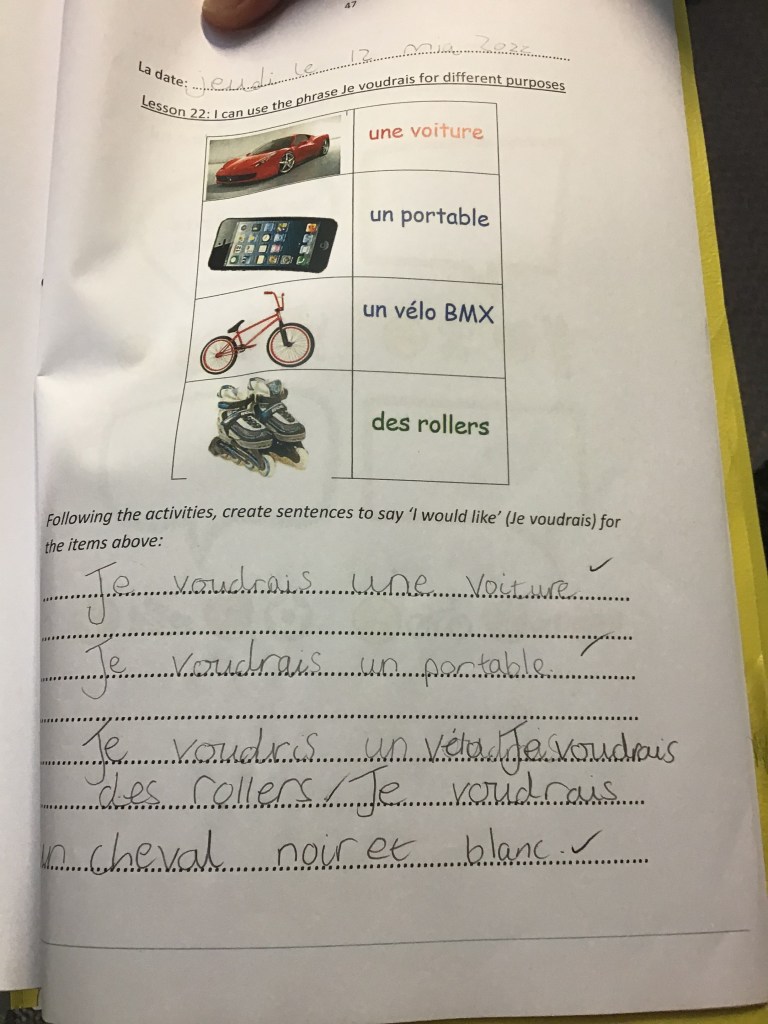 47
La date: jeudi le 12 mia 2022
Lesson 22: I can use the phrase Je voudrais for different purposes
une voiture
un portable
un vélo BMX
des rollers
Following the activities, create sentences to say ‘I would like’ (Je voudrais) for
the items above:
Je voudrais une voiture
Je voudrais un portable.
Je voudris un Je voudrais
des rollers / Je voudrais
un cheval noir et blanc.